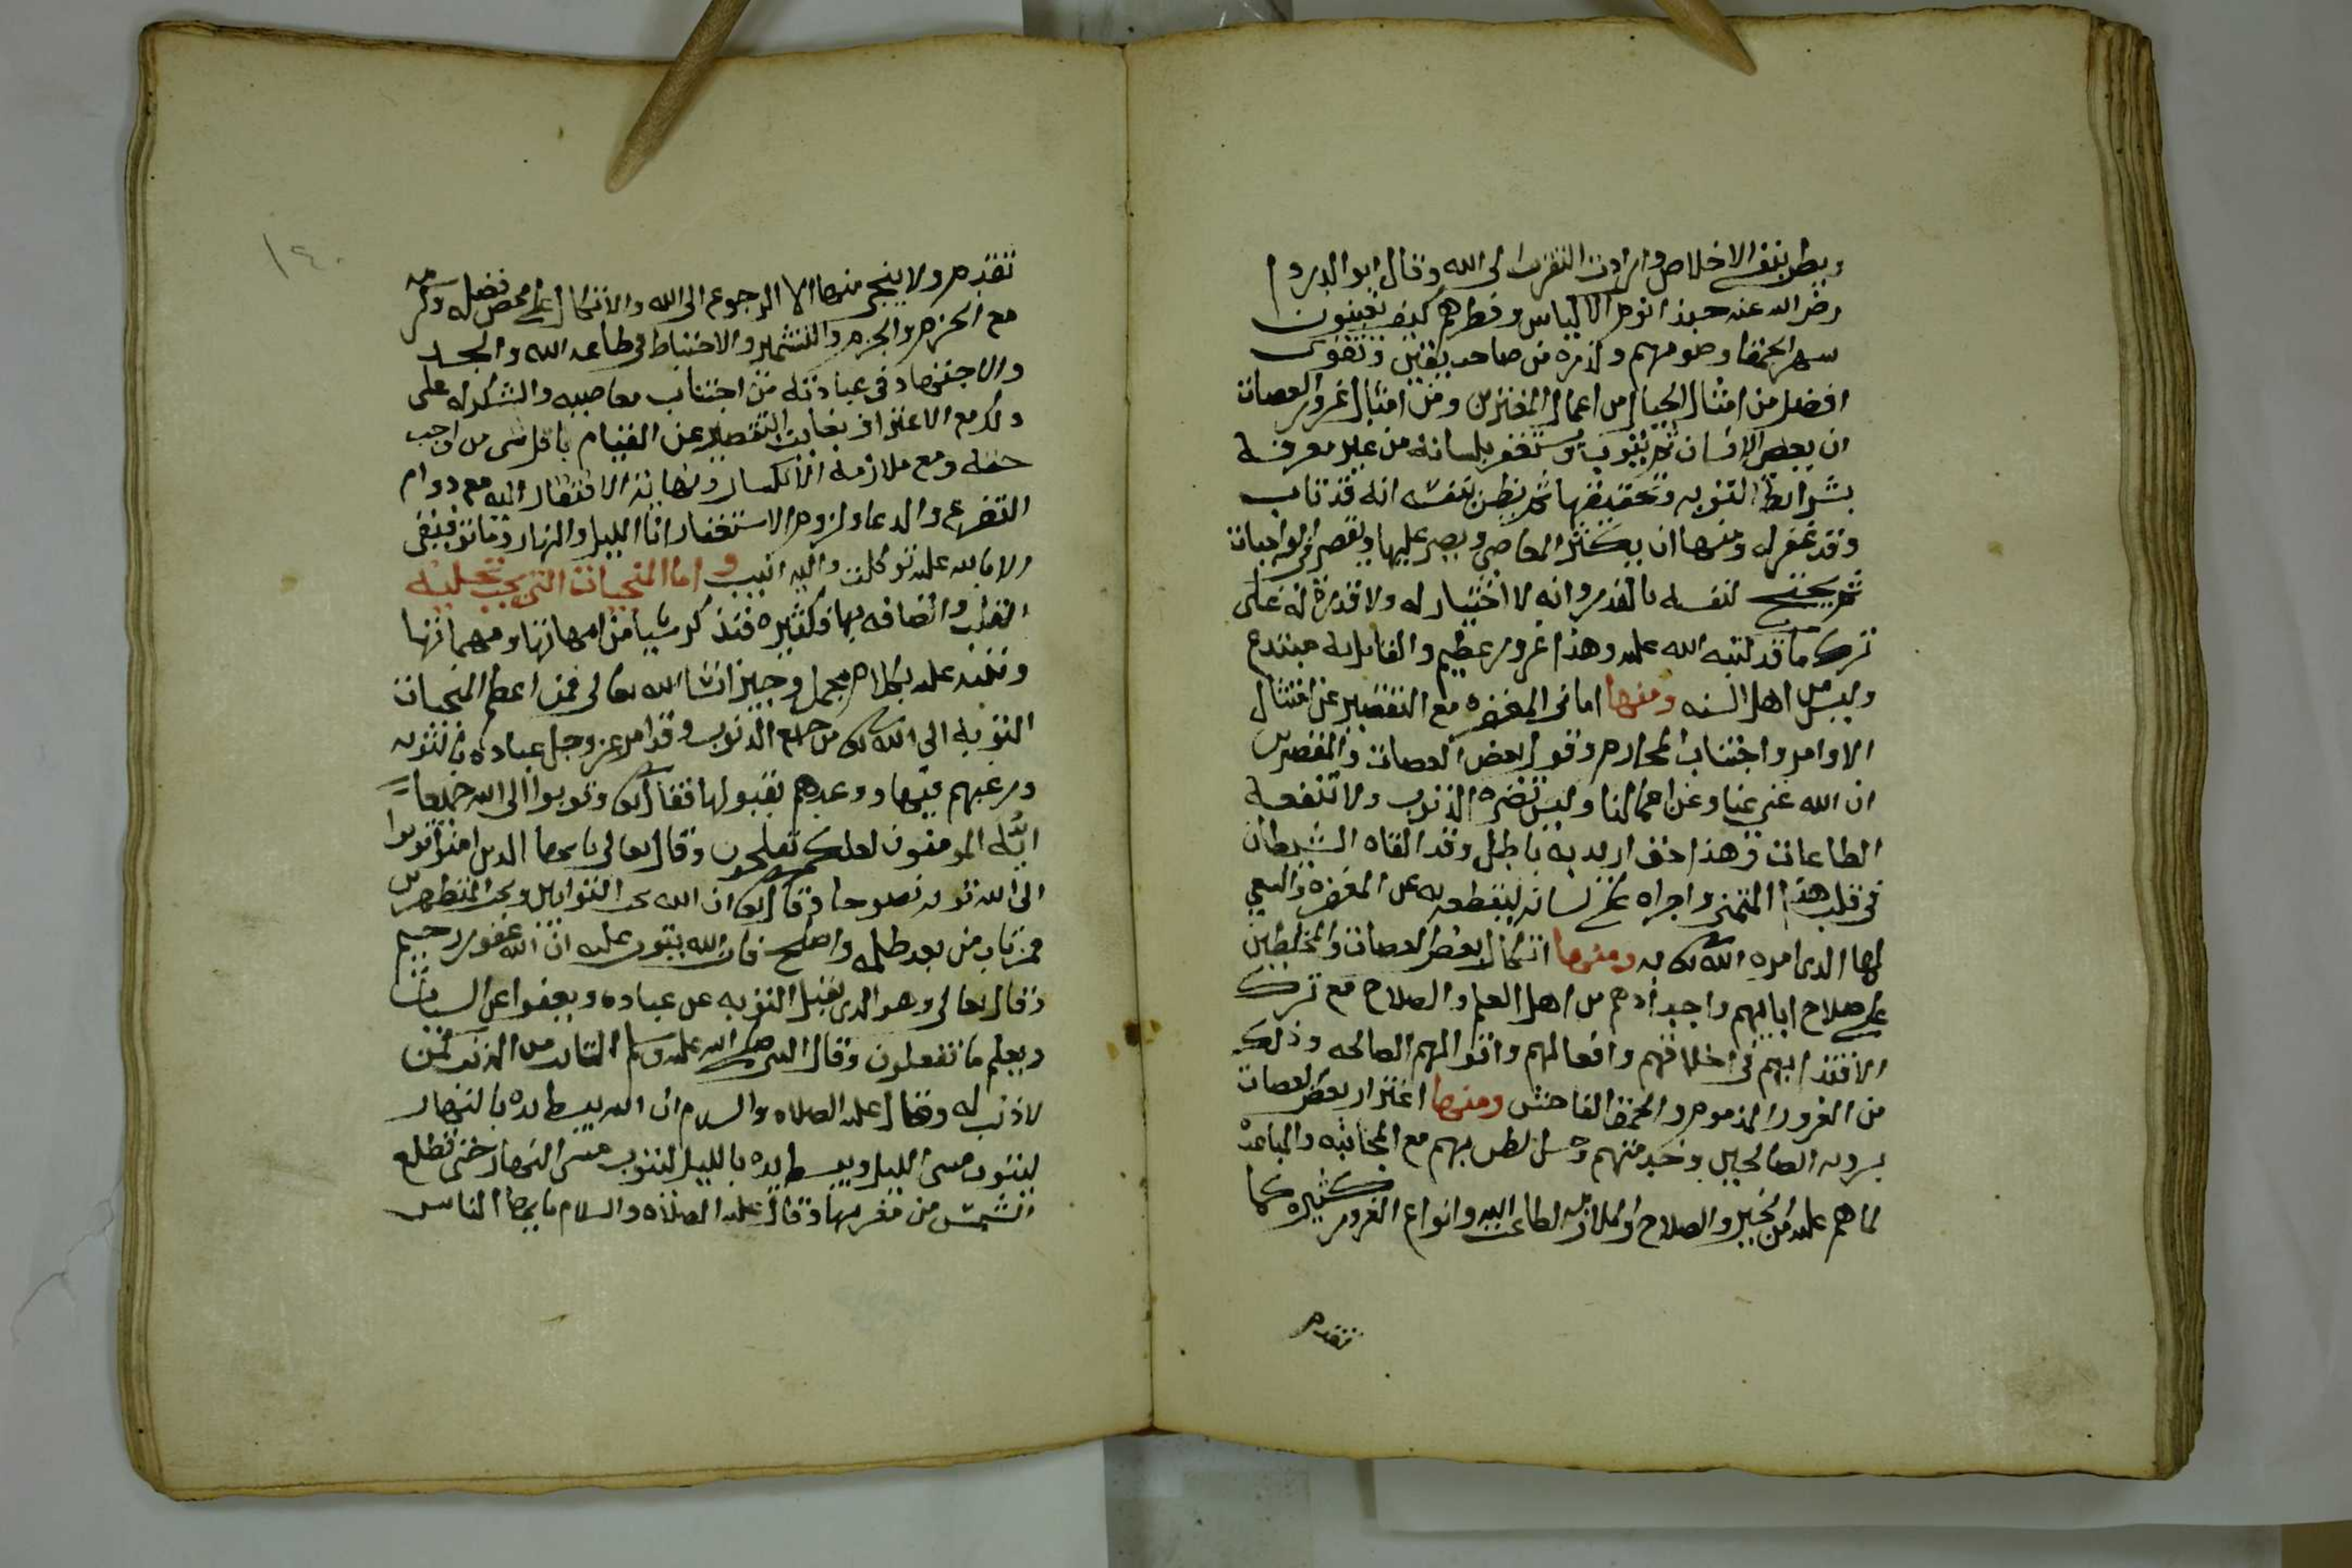 ويظن بنفسه الاخلاص وارادت التقرب الى الله وقال ابو الدردا
رضي الله عنه حبذا نوم الاكياس وفطرهم كيف يغبنون
سهر الحمقا وصومهم ولذره من صاحب يقين وتقوى
افضل من امثال الجبال من اعمال المغترين ومن امثال غرور العصات
ان بعض الانسان ثم يتوب ويستغفر بلسانه من غير معرفة
بشرايط التوبه وتحقيقها ثم يظن بنفسه انه قد تاب
وقد غفر له ومنها ان يكثر المعاصي ويصر عليها ويقصر في الواجبات
ثم يحتج لنفسه بالقدر وانه لا اختيار له ولا قدرة له على
ترك ما قد كتبه الله عليه وهذا غرور عظيم والقايل به مبتدع
وليس من اهل السنه ومنها اماني المغفره مع التقصير عن امتثال
الاوامر واجتناب المحارم وقول بعض العصات والمقصرين
ان الله غني عنا وعن اعمالنا وليس تضره الذنوب ولا تنفعه
الطاعات وهذا حق اريد به باطل وقد القاه الشيطان
في قلب هذا المتمني واجراه على لسانه ليقطعه به عن المغفره والسعي
لها الذي امره الله تعالى به ومنها اتكال بعض العصات والمخلطين
على صلاح ابايهم واجدادهم من اهل العلم والصلاح مع ترك
الاقتدا بهم في اخلاقهم وافعالهم واقوالهم الصالحه وذلك
من الغرور المذموم والحمق الفاحش ومنها اغترار بعض العصات
بروية الصالحين وخدمتهم وحسن الظن بهم مع المجانبه والمباعدة
لما هم عليه من الخير والصلاح والملازمه لطاعت الله وانواع الغرور كثيره كما
تقدم
١٤٠
تقدم ولا ينجي منها الا الرجوع الى الله والاتكال على محض فضله وكرمه
مع الحزم والجزم والتشمير والاحتياط في طاعة الله والجد
والاجتهاد في عبادته من اجتناب معاصيه والشكر له على
ذلك مع الاعتراف بغايت التقصير عن القيام باقل شي من واجب
حقه ومع ملازمة الانكسار ونهاية الافتقار اليه مع دوام
التضرع والدعا ولزوم الاستغفار انا الليل والنهار وما توفيقي
الا بالله عليه توكلت واليه انيب واما المنجيات التي يجب تحلية
القلب واتصافه بها فكثيره فنذكر شيا من امهاتها ومهماتها
وننبه عليه بكلام مجمل وجيز انشا الله تعالى فمن اعظم المنجيات
التوبه الى الله تعالى من جميع الذنوب وقد امر عز وجل عباده بالتوبه
ورغبهم فيها ووعدهم بقبولها فقال تعالى وتوبوا الى الله جميعا
ايه المومنون لعلكم تفلحون وقال تعالى يا ايها الذين امنوا توبوا
الى الله توبه نصوحا وقال تعالى ان الله يحب التوابين ويحب المتطهرين
فمن تاب من بعد ظلمه واصلح فان الله يتوب عليه ان الله غفور رحيم
وقال تعالى وهو الذي يقبل التوبه عن عباده ويعفوا عن السيات
ويعلم ما تفعلون وقال النبي صلى الله عليه وسلم التايب من الذنب كمن
لا ذنب له وقال عليه الصلاه والسلام ان الله يبسط يده بالنهار
ليتوب مسي الليل ويبسط يده بالليل ليتوب مسي النهار حتى تطلع
الشمس من مغربها وقال عليه الصلاه والسلام يا ايها الناس